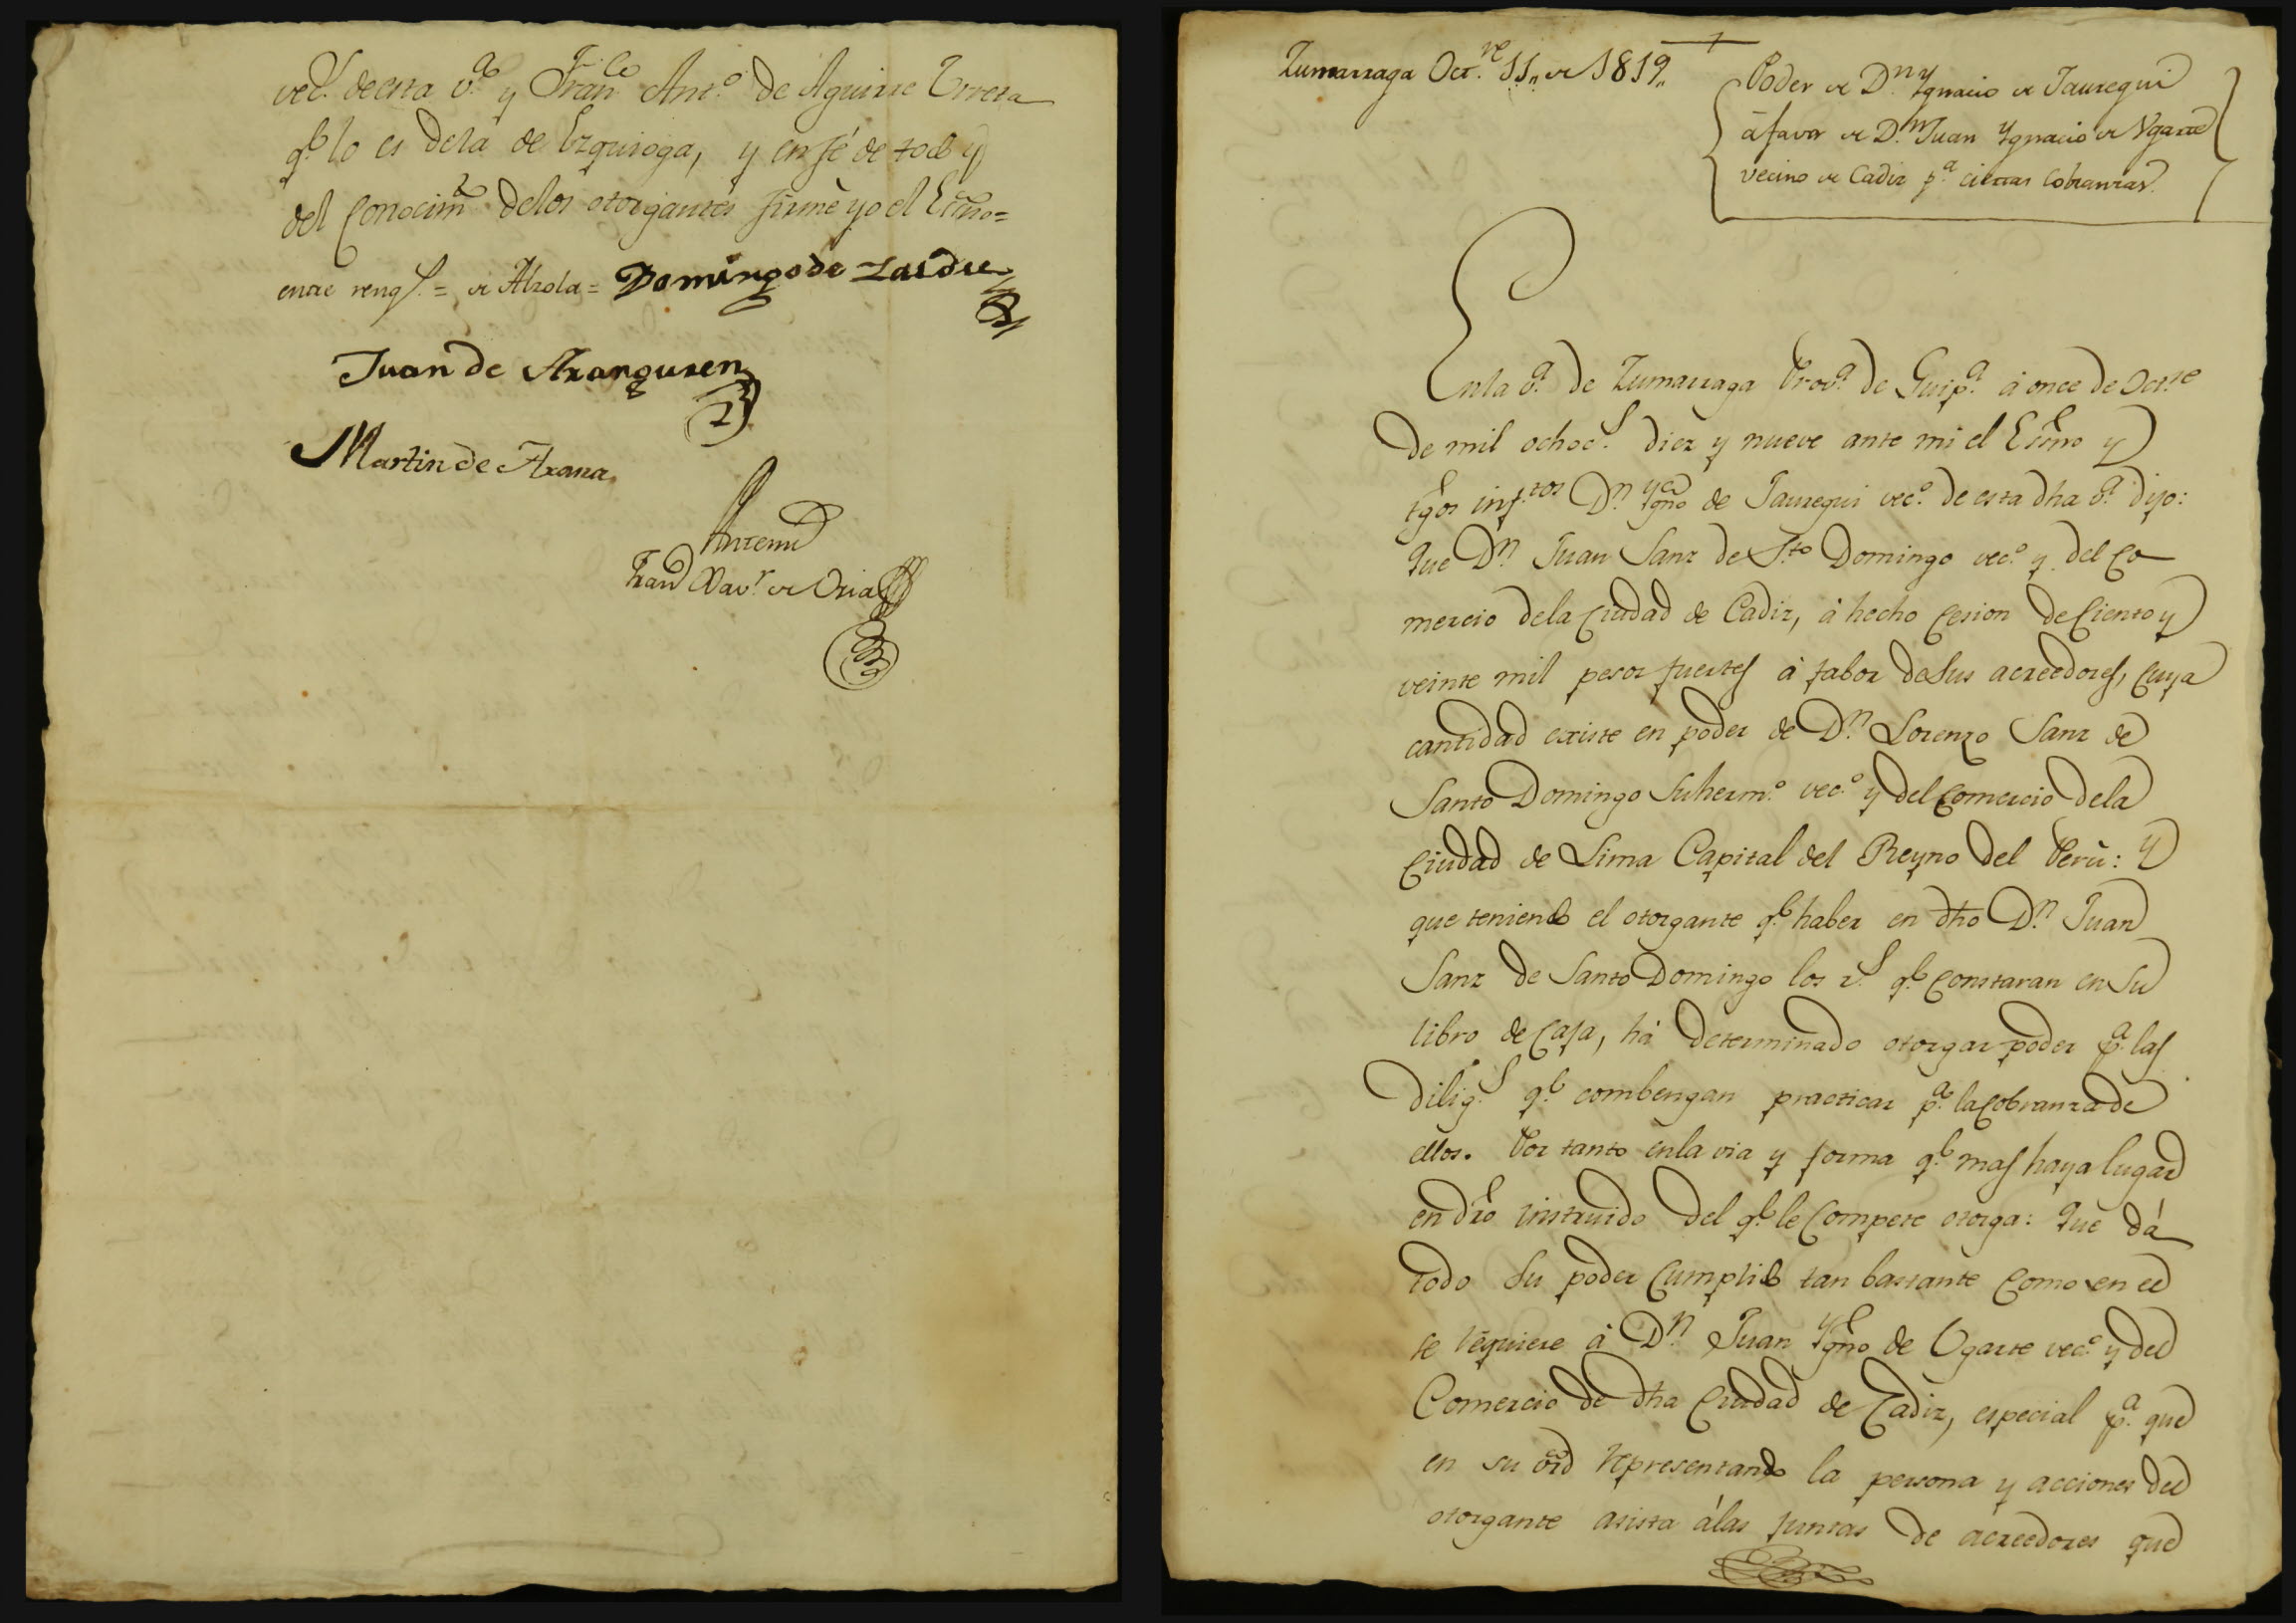 vec.s de esta v.a y Fran.co Ant.o de Aguirre Urreta
q.e lo es dela de Ezquioga, y en fé de todo y
del Conocim.to delos otorgantes firmè yo el Esno=
entre reng.s = de Alzola = Domingo de Zaldu
Juan de Aranguren
Martin de Arana
Antemi
Fran.co Xav.r de Oria
Zumarraga Oct.re 11,, de 1819,,
Poder de D.n Ygnacio de Jauregui
á favor de D.n Juan Ygnacio de Vgarte
vecino de Cadiz p.a ciertas Cobranzas.
Enla v.a de Zumarraga Prov.a de Guip.a à once de Oct.re
de mil ochoc.s diez y nueve ante mi el Esno y
tgos inf.tos D.n Ygno de Jauregui vec.o de esta dha v.a dijo:
Que D.n Juan Sanz de S.to Domingo vec.o y del Co
mercio dela Ciudad de Cadiz, à hecho Cesion de Ciento y
veinte mil pesos fuertes à fabor de sus acreedores, Cuya
cantidad existe en poder de D.n Lorenzo Sanz de
Santo Domingo su herm.o vec.o y del Comercio dela
Ciudad de Lima Capital del Reyno del Perù: y
que teniendo el otorgante q.e haber en dho D.n Juan
Sanz de Santo Domingo los r.s q.e Constaran en su
libro de Caja, hà determinado otorgar poder p.a las
dilig.s q.e combengan practicar p.a la Cobranza de
ellos. Por tanto enla via y forma q.e mas haya lugar
en dro instruido del q.e le Compete otorga: Que dá
todo su poder Cumplido tan bastante Como en el
se requiere à D.n Juan Ygno de Ugarte vec.o y del
Comercio de dha Ciudad de Cadiz, especial p.a que
en su representando la persona y acciones del
otorgante asista á las juntas de acreedores que